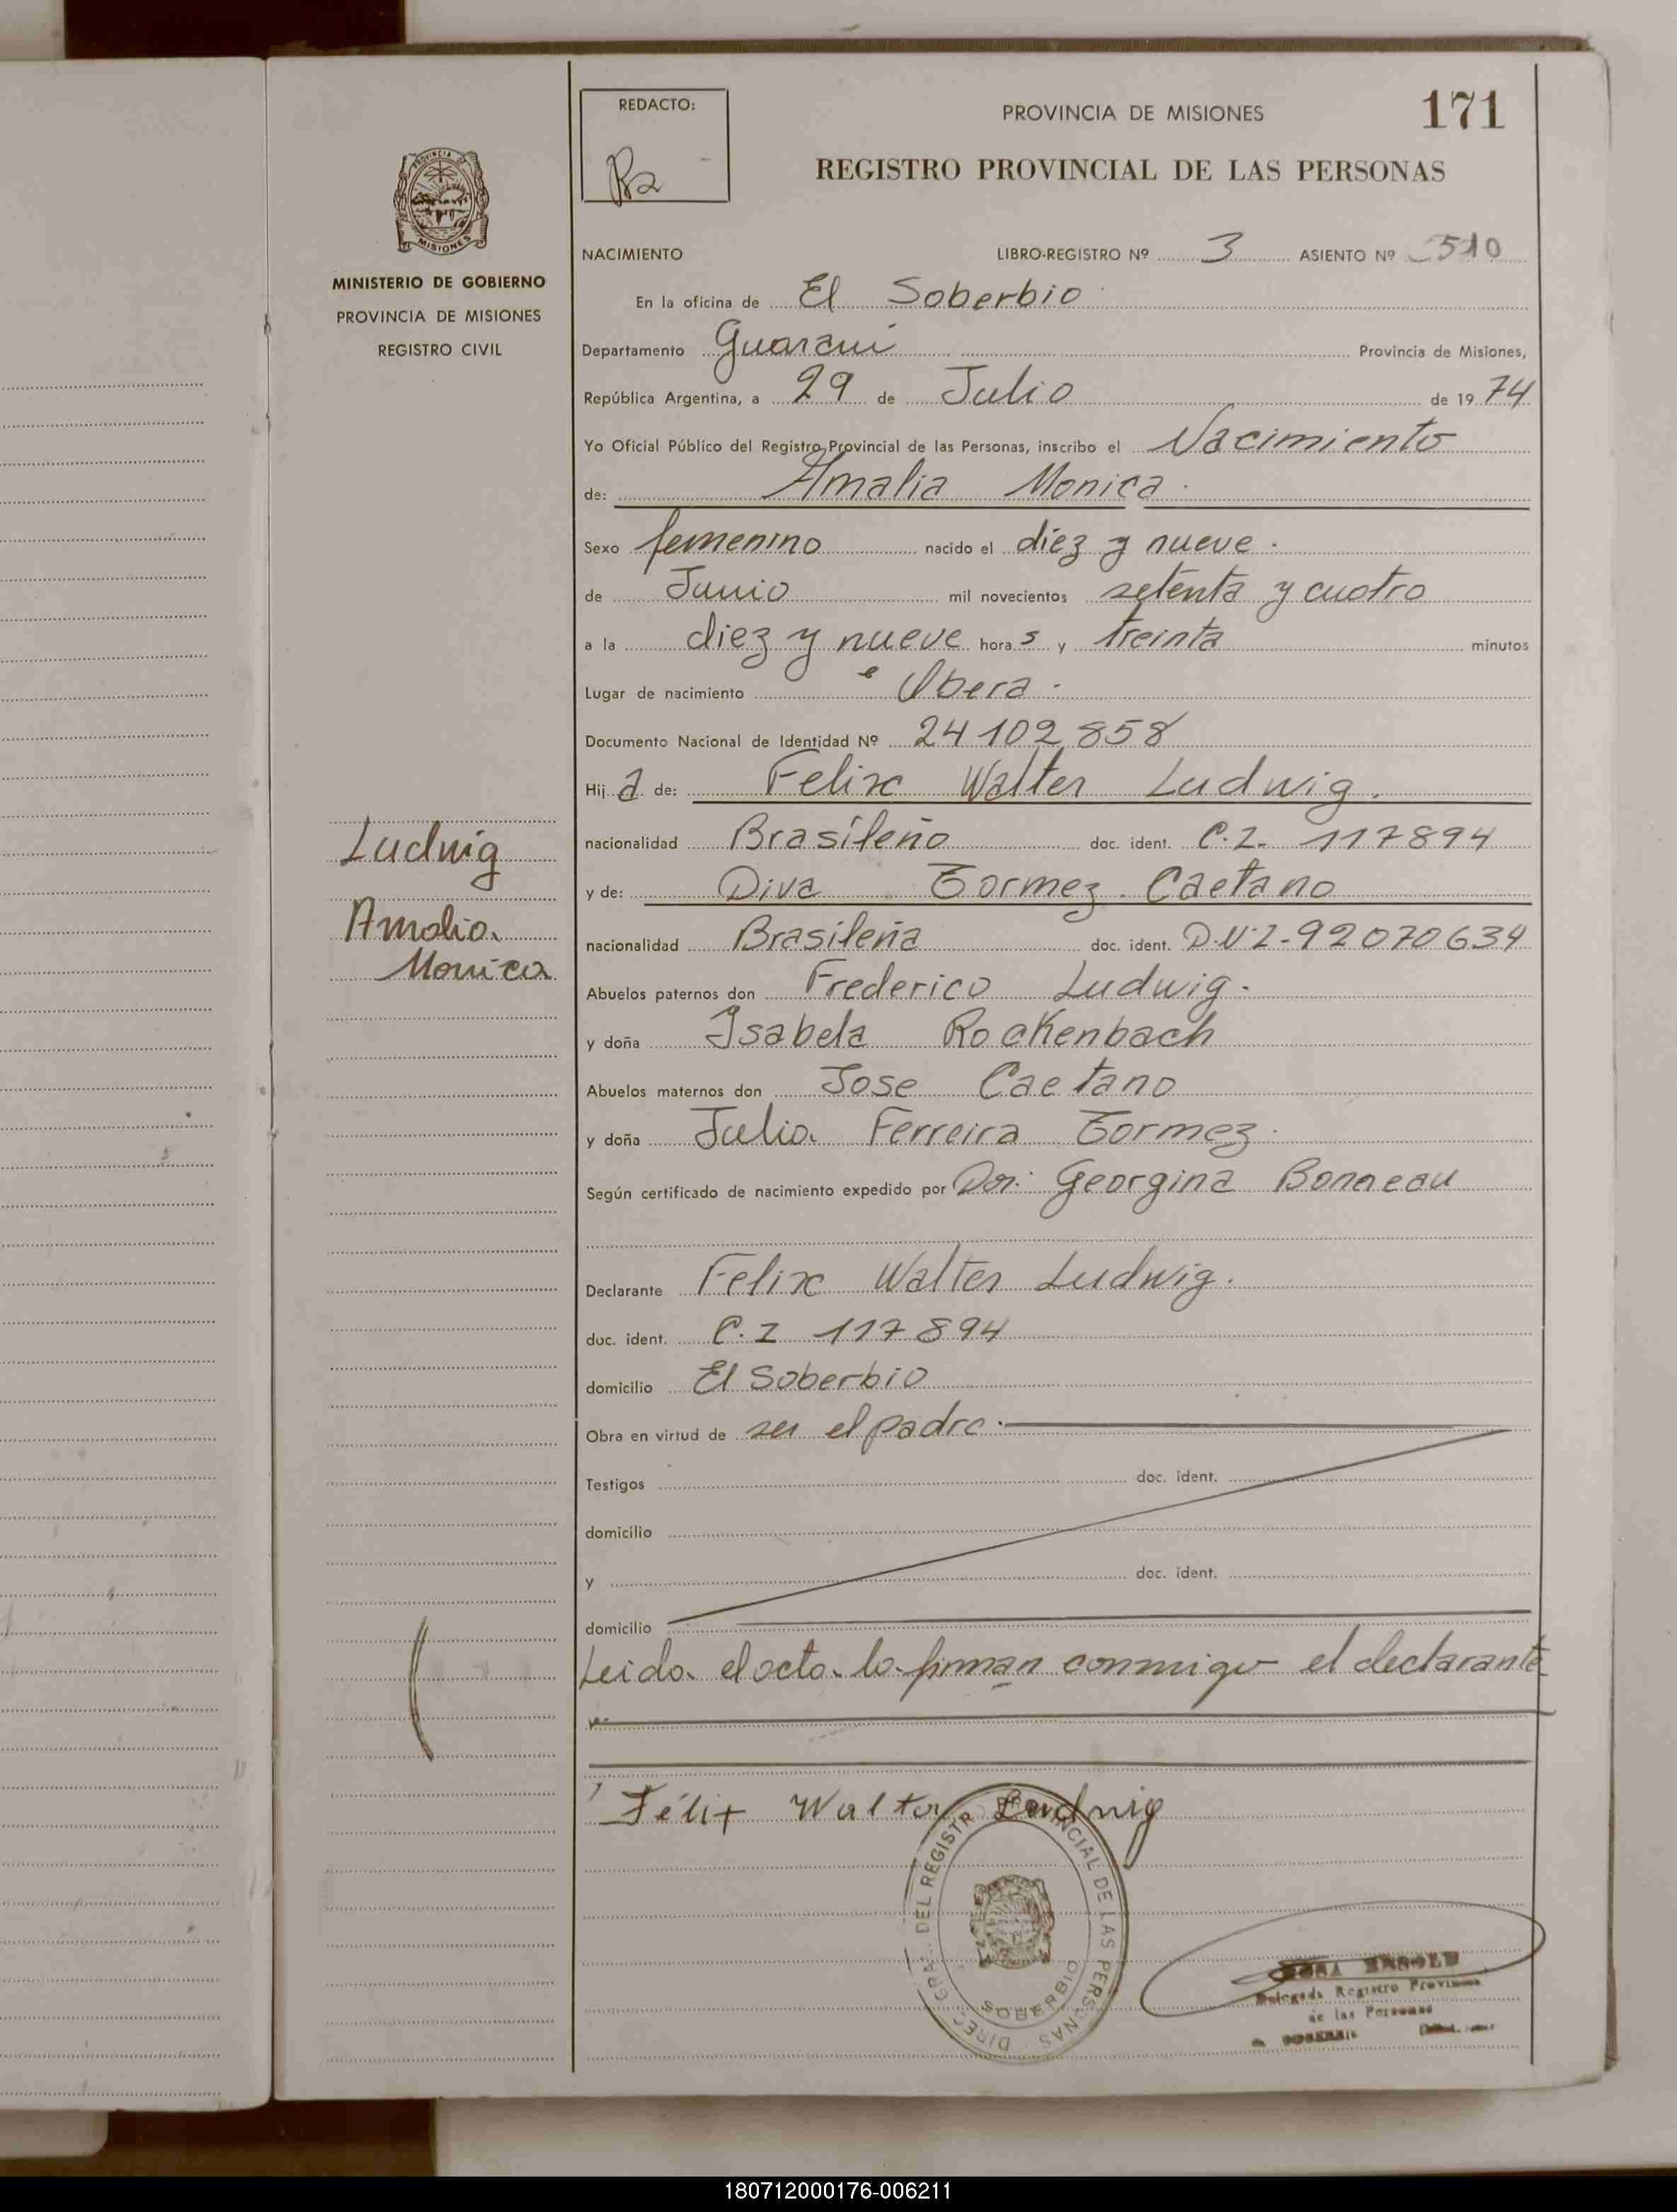 REDACTO:
PROVINCIA DE MISIONES
171
REGISTRO PROVINCIAL DE LAS PERSONAS
PROVINCIA
MISIONES
MINISTERIO DE GOBIERNO
PROVINCIA DE MISIONES
REGISTRO CIVIL
NACIMIENTO LIBRO-REGISTRO Nº 3 ASIENTO Nº 510
En la oficina de El Soberbio
Departamento Guarani Provincia de Misiones,
República Argentina, a 29 de Julio de 1974
Yo Oficial Público del Registro Provincial de las Personas, inscribo el Nacimiento
de: Amalia Monica.
Sexo femenino nacido el diez y nueve.
de Junio mil novecientos setenta y cuatro
a la diez y nueve horas y treinta minutos
Lugar de nacimiento Obera.
Documento Nacional de Identidad Nº 24102858
Hija de: Felix Walter Ludwig.
nacionalidad Brasileño doc. ident. C.I. 117894
y de: Diva Tormez Caetano
nacionalidad Brasileña doc. ident. D.N.I-92070634
Abuelos paternos don Frederico Ludwig.
y doña Isabela Rockenbach
Abuelos maternos don Jose Caetano
y doña Julia Ferreira Tormez.
Según certificado de nacimiento expedido por Dr: Georgina Bonneau
Declarante Felix Walter Ludwig.
doc. ident. C.I 117894
domicilio El Soberbio
Obra en virtud de ser el padre.
Testigos doc. ident.
domicilio
y doc. ident.
domicilio
Leida el acta la firman conmigo el declarante
Ludwig
Amalia
Monica
Félix Walter Ludwig
DIREC. GRAL. DEL REGISTRO PROVINCIAL DE LAS PERSONAS
SOBERBIO
Delegada Registro Provincial
de las Personas
180712000176-006211